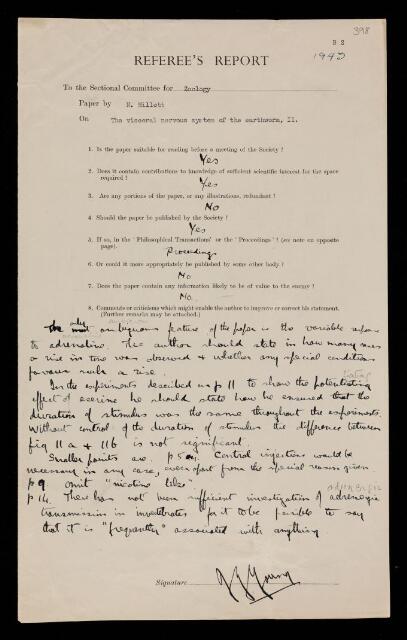 398
B 2
1943
REFEREE'S REPORT
To the Sectional Committee for Zoology
Paper by N. Millott
On The visceral nervous system of the earthworm, II.
1. Is the paper suitable for reading before a meeting of the Society ?
Yes
2. Does it contain contributions to knowledge of sufficient scientific interest for the space
required ?
Yes
3. Are any portions of the paper, or any illustrations, redundant ?
No
4. Should the paper be published by the Society ?
Yes
5. If so, in the 'Philosophical Transactions' or the 'Proceedings' ? (see note on opposite
page).
Proceedings
6. Or could it more appropriately be published by some other body ?
No
7. Does the paper contain any information likely to be of value to the enemy ?
No.
8. Comments or criticisms which might enable the author to improve or correct his statement.
(Further remarks may be attached.)
The only ambiguous feature of the paper is the variable response
to adrenaline. The author should state in how many cases
a rise in tone was observed & whether any special conditions
favour such a rise.
In the experiments described on p 11 to show the potentiating
effect of eserine he should state how he ensured that the
duration of stimulus was the same throughout the experiments.
Without control of the duration of stimulus the difference between
fig 11a & 11b is not significant.
Smaller points are. p 5 Control injections would be
necessary in any case, even apart from the special reason given.
p 9 omit "nicotine like".
p 14. There has not been sufficient investigation of adrenergic
transmission in invertebrates for it to be possible to say
that it is "frequently" associated with anything
Signature J Z Young